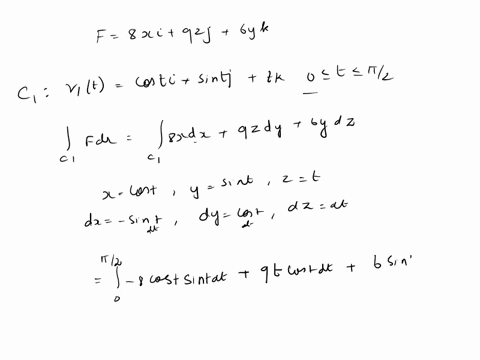 F = 8xi + 9zj + 6yk
C1 : r1(t) = costi + sintj + tk 0 ≤ t ≤ π/2
∫C1 Fdr = ∫C1 8xdx + 9zdy + 6ydz
x = cost , y = sint , z = t
dx = -sint dt , dy = cost dt , dz = dt
= ∫0^π/2 -8 cost sintdt + 9t costdt + 6 sin